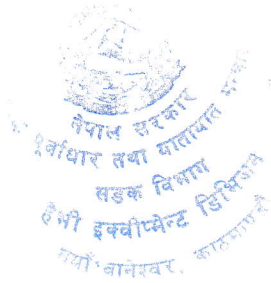 नेपाल सरकार
पूर्वाधार तथा यातायात
सडक विभाग
हेभी इक्वीप्मेन्ट डिभिजन
नयाँ बानेश्वर, काठमाडौं